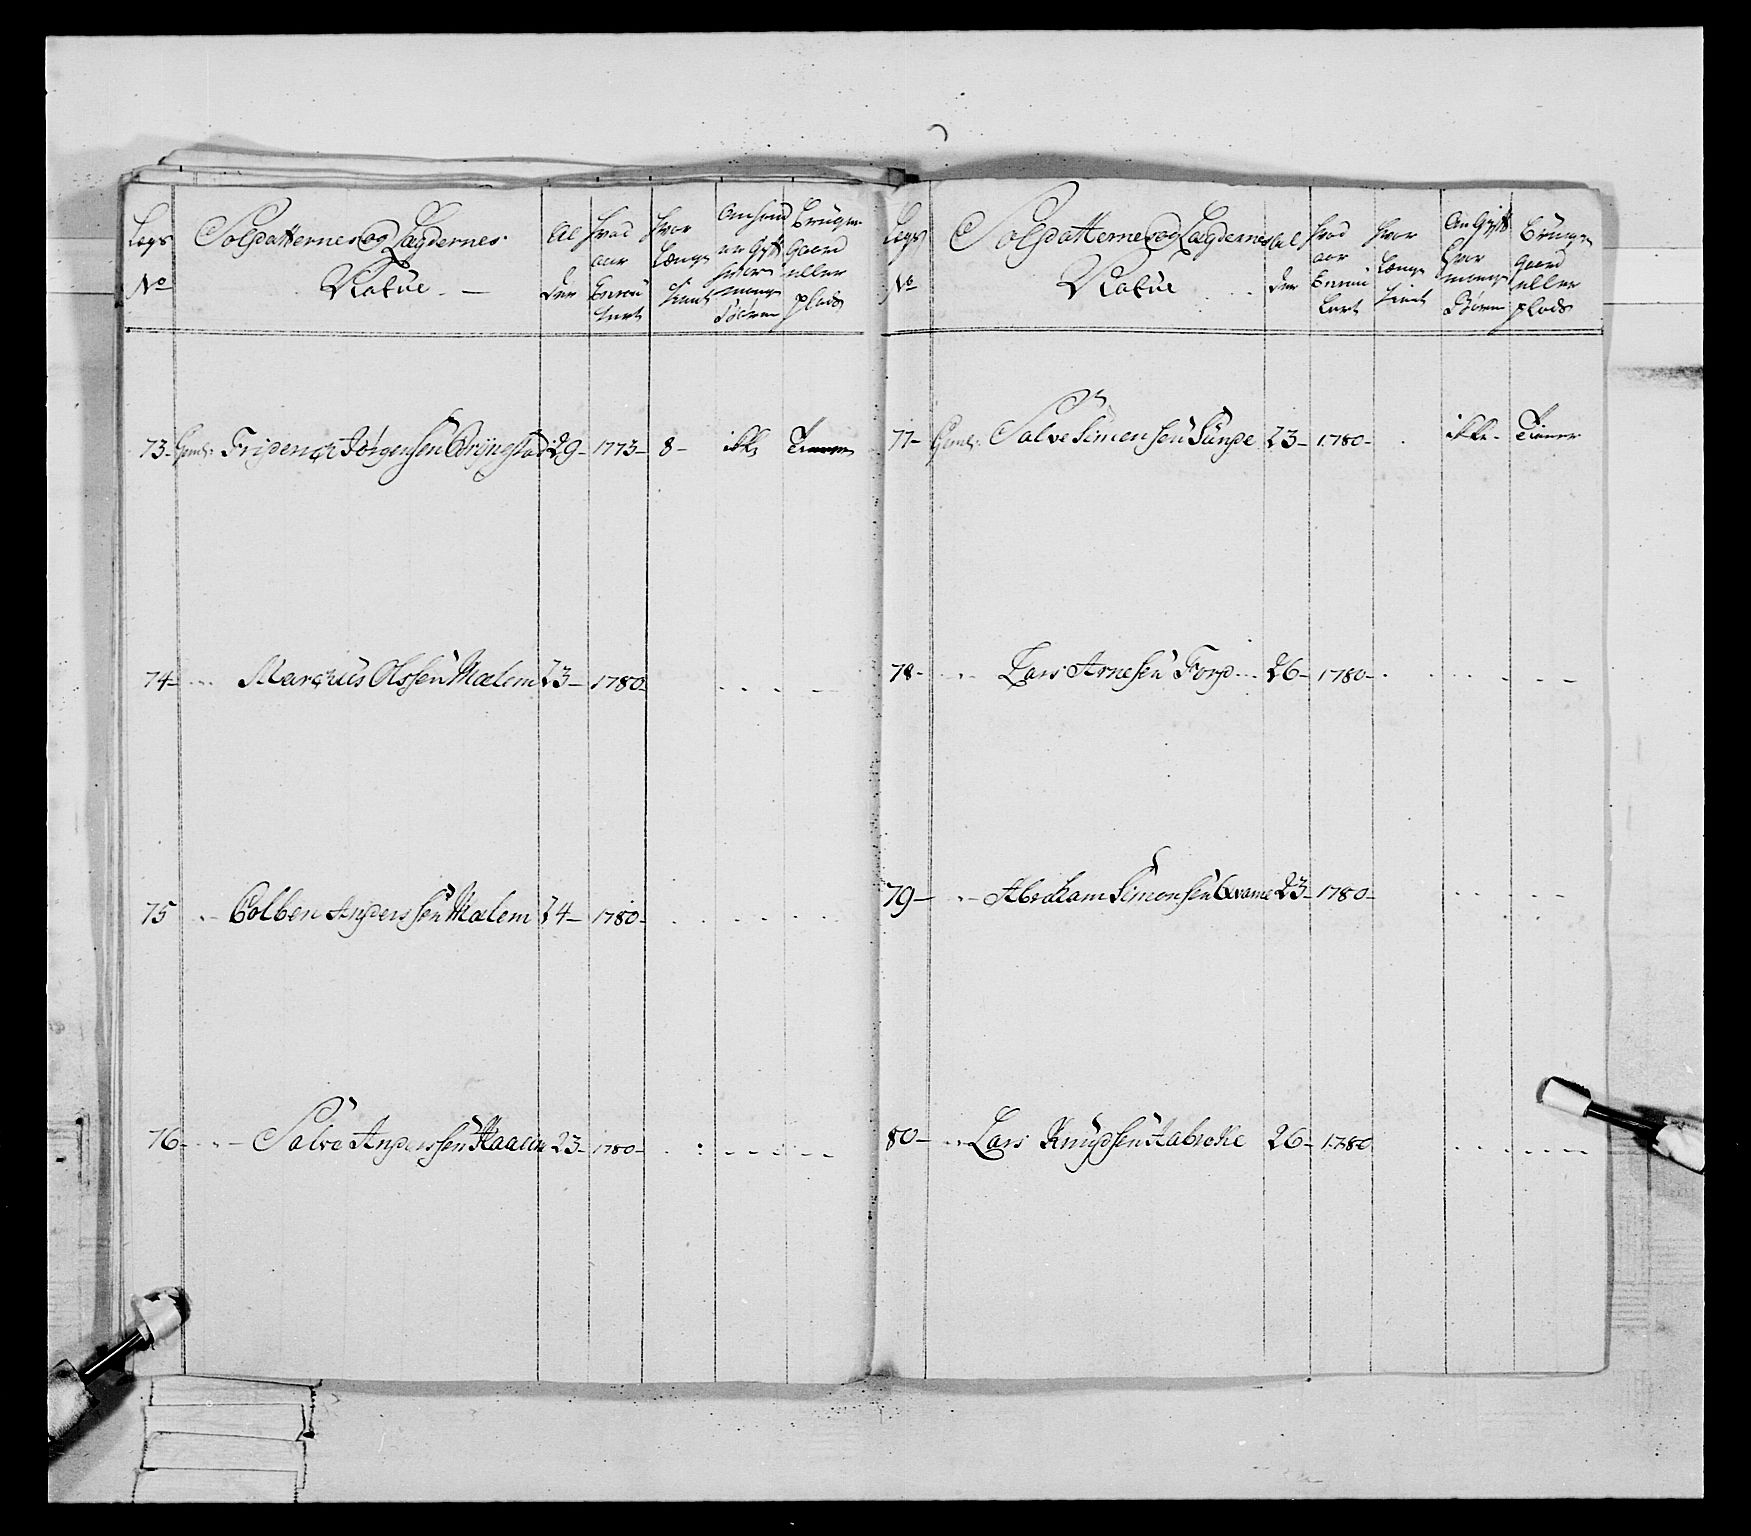 Legs No Soldatternes og Lægdernes Nafne Al der Hvad aar Enrou lert Hvor Længe tient Om hand er Gift hvor mange Börn Bruger Gaard eller plads
73 - Geml: Friderich Jörgensen Bringstad 29 - 1773 - 8 - ikke Tiener
74 - Marcus Olssen Mælem 23 - 1780 -
75 Colben Anderssen Mælem 24 - 1780 -
76 - Salve Anderssen Haaeim 23 - 1780 -
Legs No Soldatternes og Lægdernes Nafne Al der Hvad aar Enrou lert Hvor Længe tient Om Gift Hvor mange Börn Bruger Gaard eller plads
77 - Geml: Salve Simensen Sunde 23 - 1780 - ikke - Tiener
78 - Lars Arnesen Ford 26 - 1780 -
79 - Abraham Simonsen Qvame 23 - 1780 -
80 - Lars Knudsen Aabrekke 26 - 1780